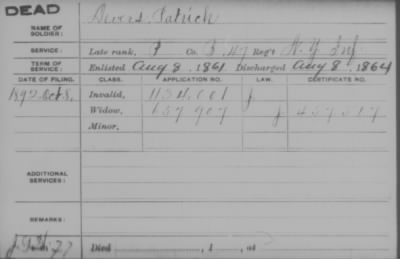 DEAD
NAME OF SOLDIER: Devers Patrick
SERVICE: Late rank, P Co. B. 47 Reg't N.Y. Inf
TERM OF SERVICE: Enlisted Aug 8, 1861 Discharged Aug 8, 1864
DATE OF FILING. CLASS. APPLICATION NO. LAW. CERTIFICATE NO.
1892 Oct 8, Invalid, 1134.001 J
Widow, 657 907 J 457 517
Minor,
ADDITIONAL SERVICES:
REMARKS:
Died , 1 , at